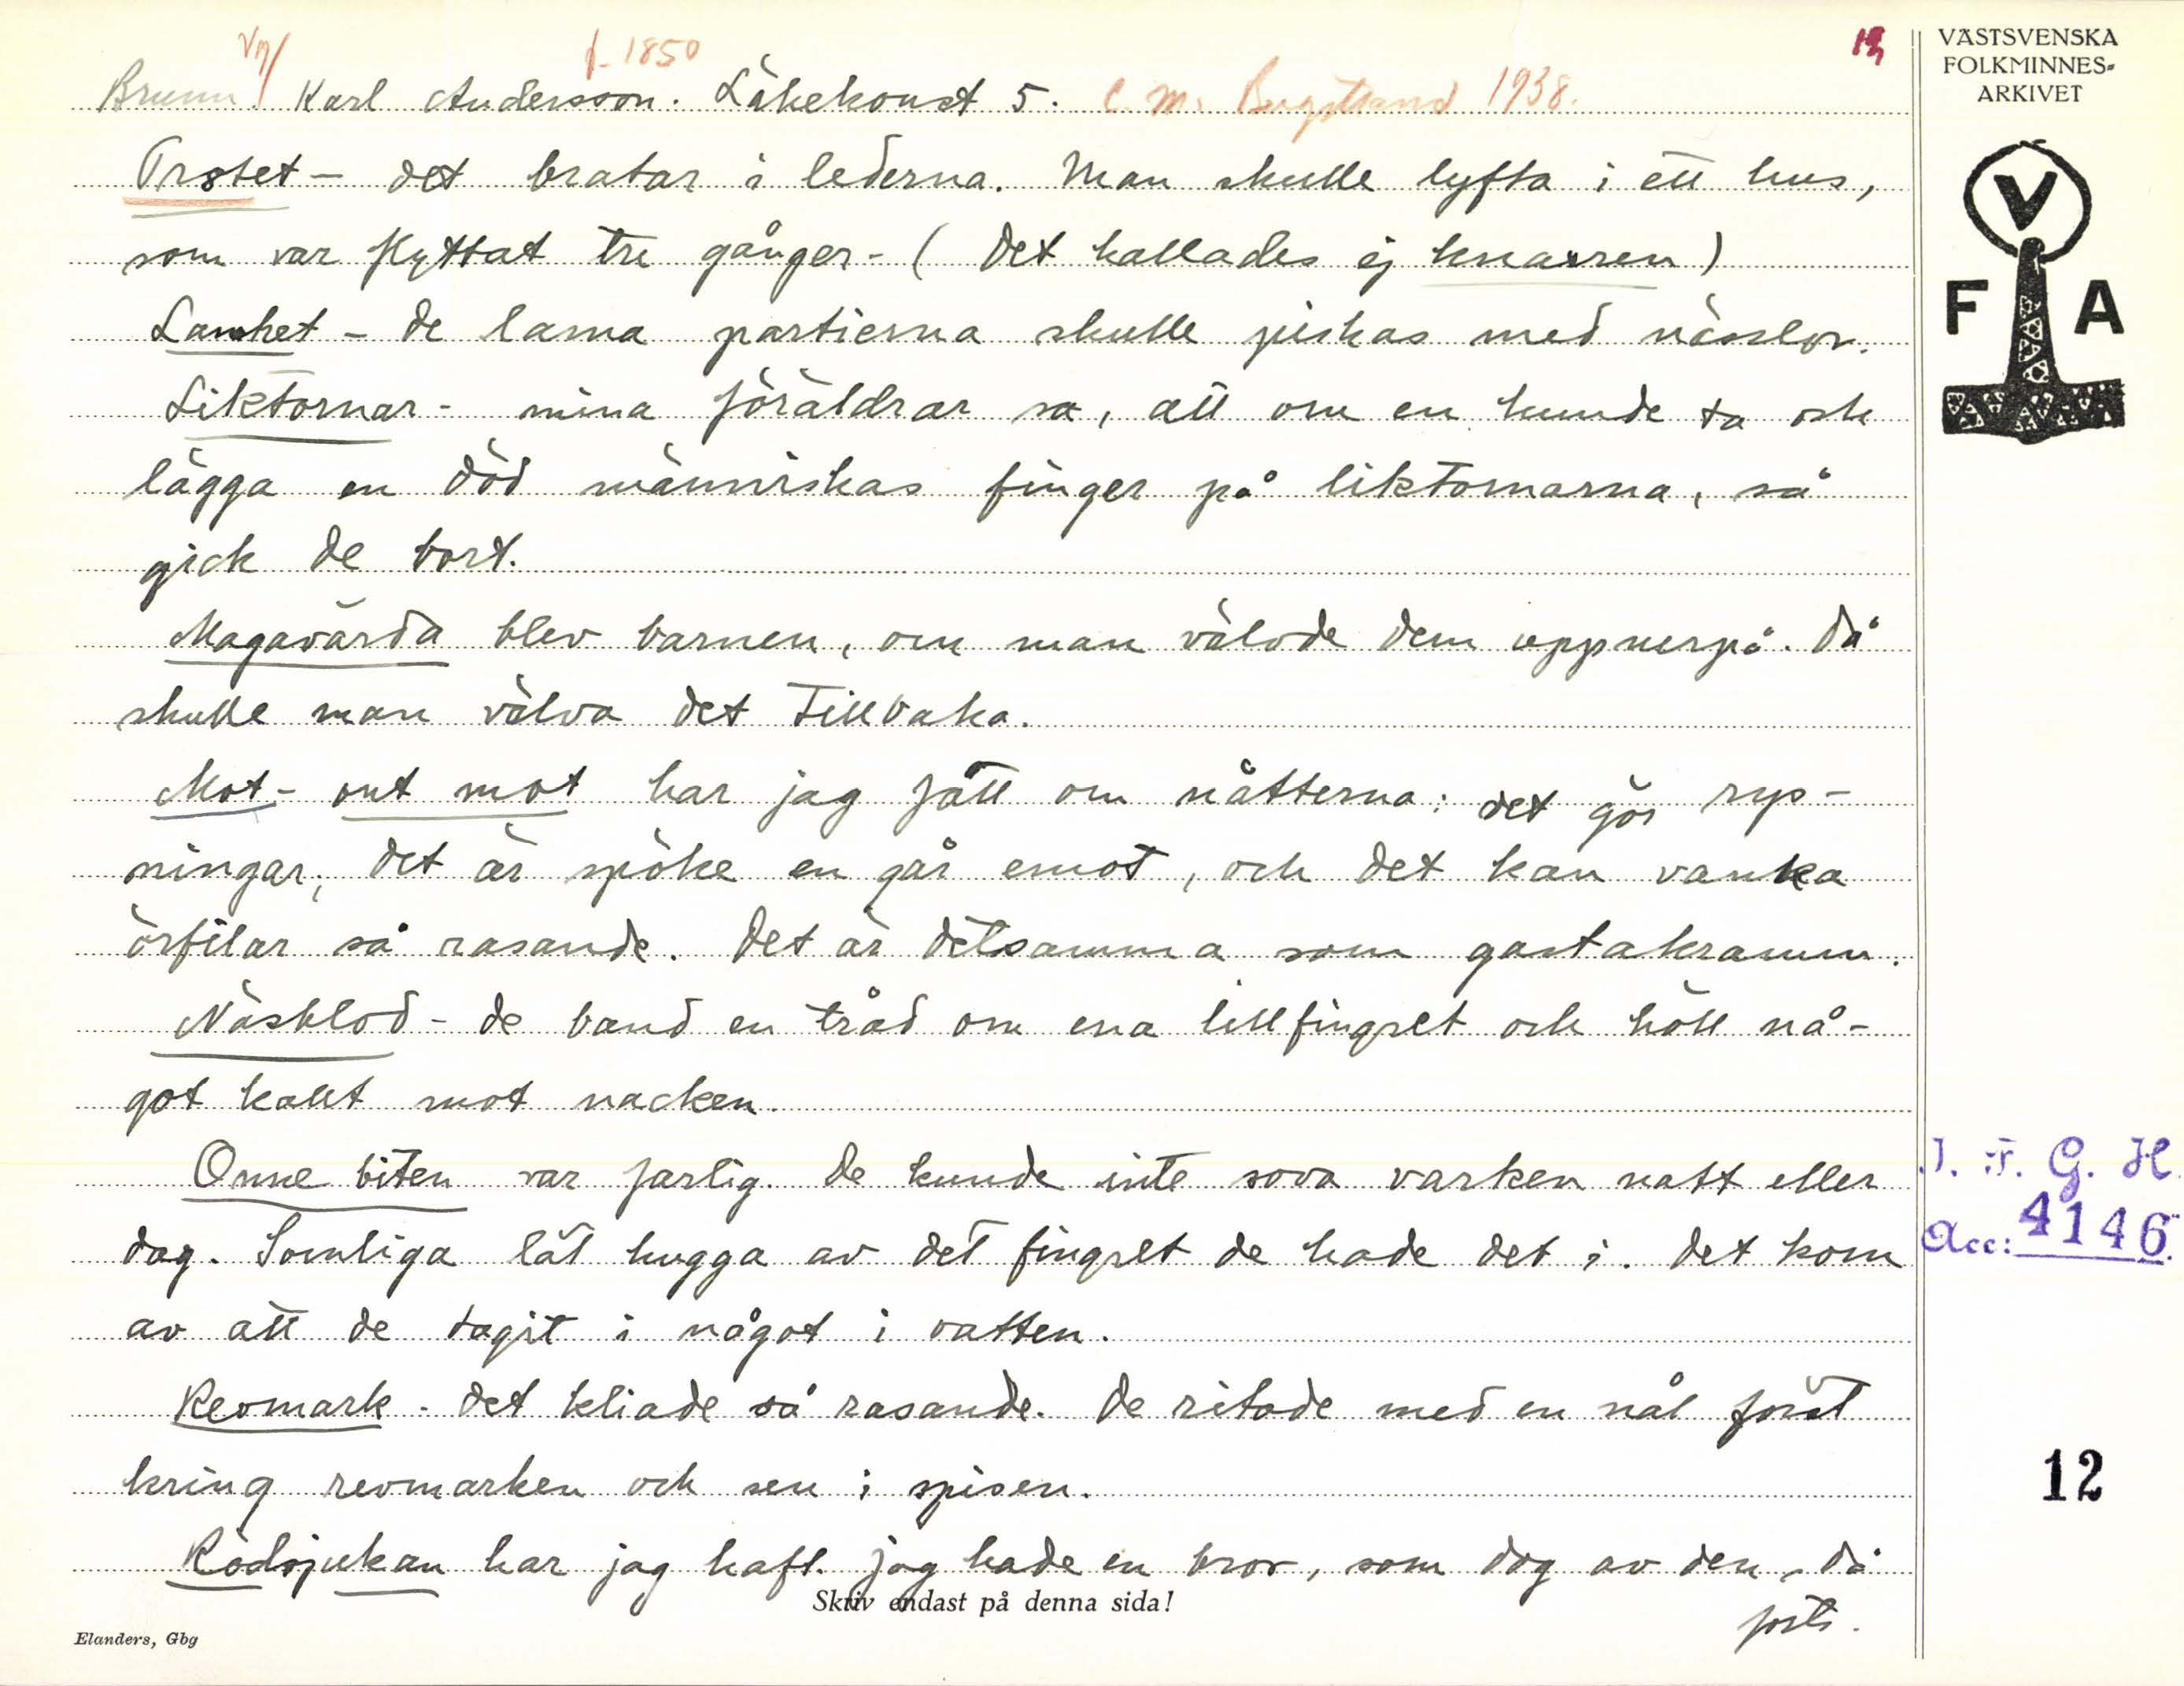 Vg/ f. 1850
Brunn Karl Andersson. Läkekonst 5. C. M. Bergstrand 1938.
VÄSTSVENSKA
FOLKMINNES-
ARKIVET
V
F A
Orstet - det bratar i lederna. Man skulle lyfta i ett hus,
som var flyttat tre gånger - (Det kallades ej knarren)
Lamhet - de lama partierna skulle piskas med nässlor.
Liktornar - mina föräldrar sa, att om en kunde ta och
lägga en död människas finger på liktornarna, så
gick de bort.
Magavärda blev barnen, om man välvde dem uppnerpå. Då
skulle man välva det tillbaka.
Mot - ont mot har jag fått om nätterna: det gör rys-
ningar; det är spöke en går emot, och det kan vanka
örfilar så rasande. Det är detsamma som gastakramm.
Näsblod - de band en tråd om ena lillfingret och höll nå-
got kallt mot nacken.
Onne biten var farlig. De kunde inte sova varken natt eller
dag. Somliga lät hugga av det fingret de hade det i. Det kom
av att de tagit i något i vatten.
Revmark - det kliade så rasande. De ritade med en nål först
kring revmarken och sen i spisen.
Rödsjukan har jag haft. Jag hade en bror, som dog av den, då
forts.
I. F. G. H.
Acc: 4146.
12
Skriv endast på denna sida!
Elanders, Gbg